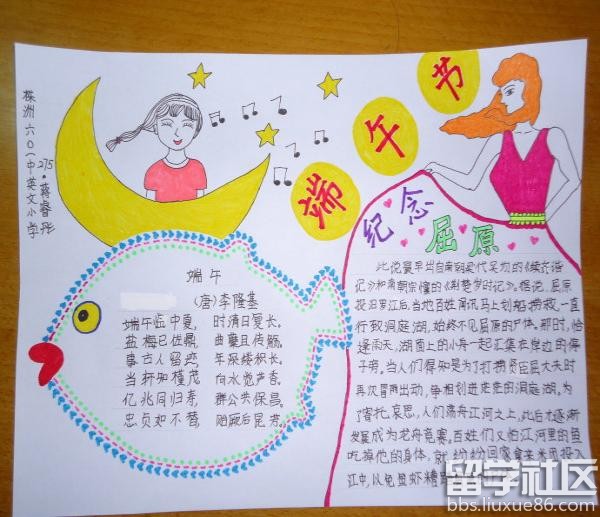 株洲六〇一中英文小学
275·蒋睿
端午节
纪念
屈原
端午
(唐)李隆基
端午临中夏，时清日复长。
盐梅已佐鼎，曲糵且传觞。
事古人留迹，年深缕积长。
当轩知槿茂，向水觉芦香。
亿兆同归寿，群公共保昌。
忠贞如不替，贻厥后昆芳。
此说最早出自南朝梁代吴均的《续齐谐
记》和南朝宗懔的《荆楚岁时记》。据说，屈原
投汨罗江后，当地百姓闻讯马上划船捞救，一直
行致洞庭湖，始终不见屈原的尸体。那时，恰
逢雨天，湖面上的小舟一起汇集在岸边的停
子旁。当人们得知是为了打捞贤臣屈大夫时
再次冒雨出动，争相划进茫茫的洞庭湖。为
了寄托哀思，人们荡舟江河之上，此后才逐渐
发展成为龙舟竞赛。百姓们又怕江河里的鱼
吃掉他的身体，就纷纷回家拿来米团投入
江中，以免鱼虾糟蹋
留学社区
bbs.liuxue86.com